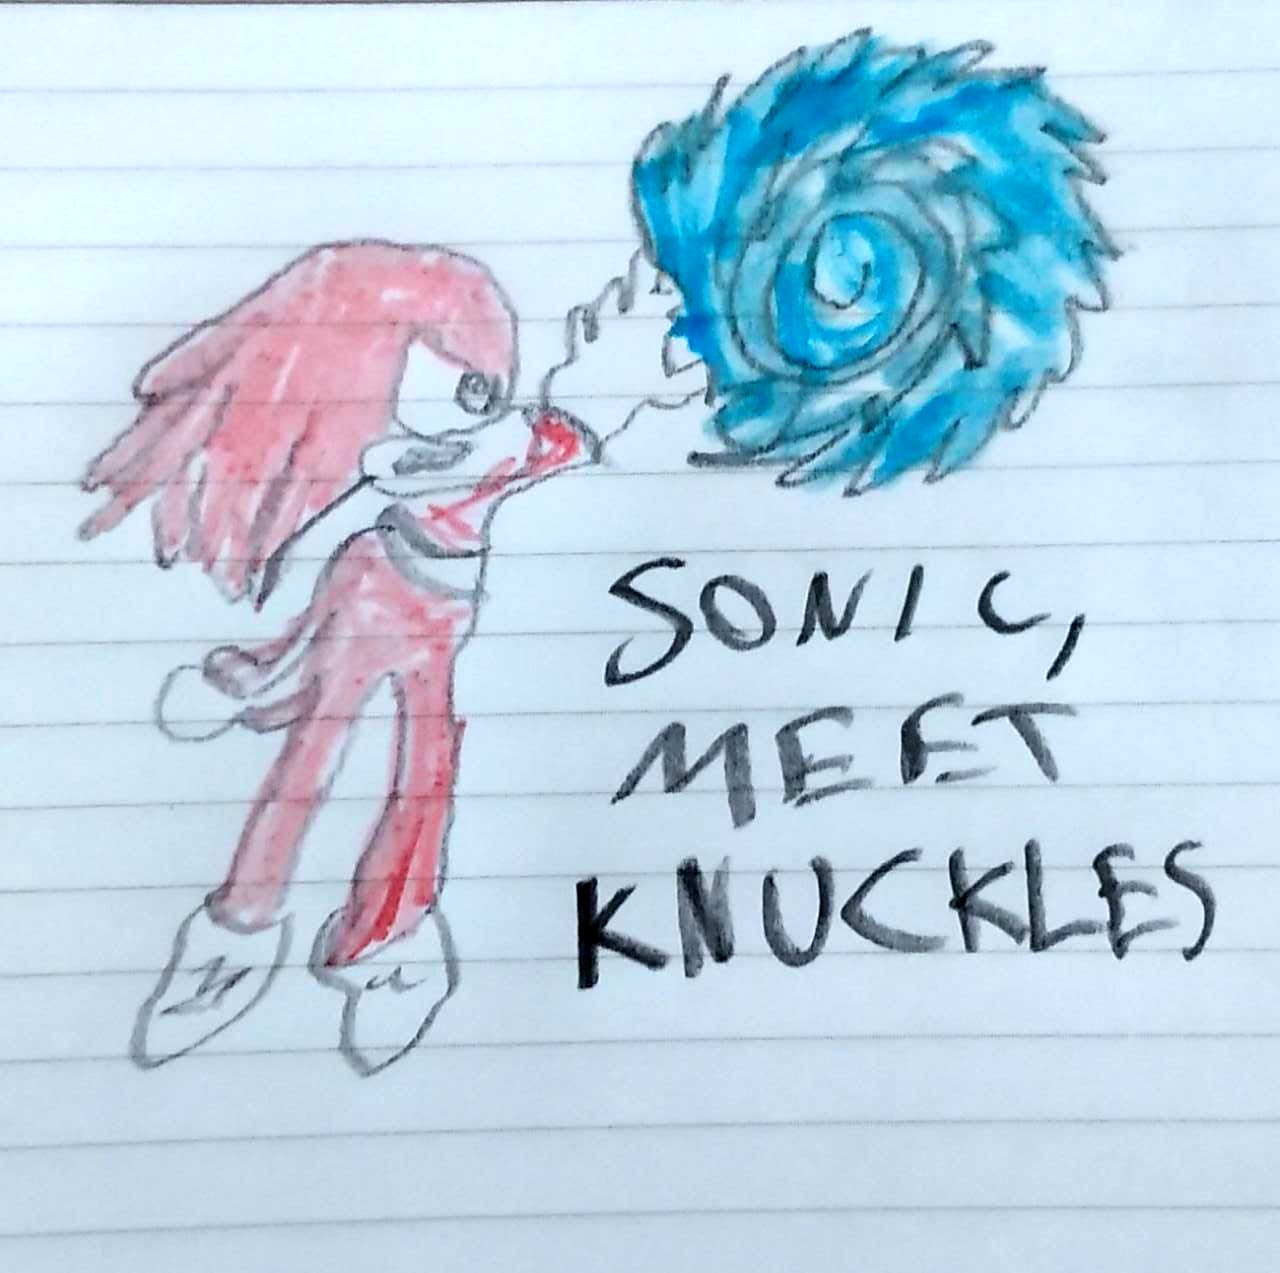 SONIC,
MEET
KNUCKLES